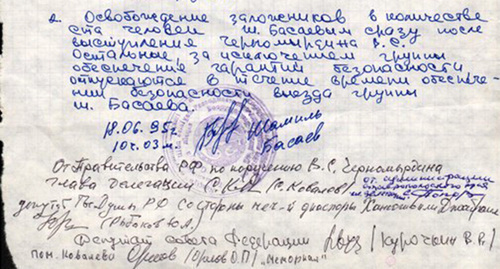 2. Освобождение заложников в количестве
ста человек Ш. Басаевым сразу после
выступления Черномырдина В.С.
Остальные за исключением группы
обеспечения гарантий безопасности
отпускаются в течение времени обеспече-
ний безопасности выезда группы
Ш. Басаева.
18.06.95г. Шамиль
10ч.03м. Басаев
От Правительства РФ по поручению В.С. Черномырдина
глава делегации (С. Ковалев) от администрации
депутат Гос. Думы РФ со стороны чеч-й диаспоры
(Рыбаков Ю.А.)
Депутат Совета Федерации /Курочкин В.В./
пом. Ковалева Орлов (Орлов О.П.) "Мемориал"